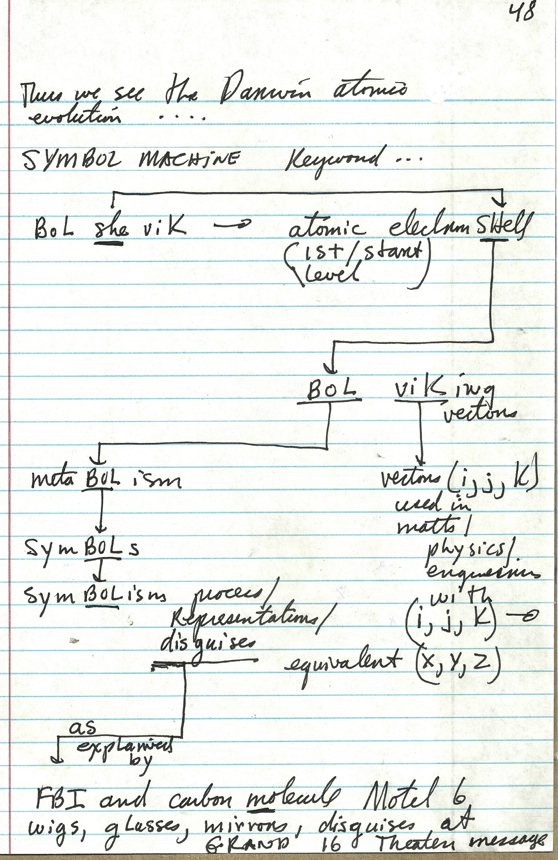 48
Thus we see the Darwin atomic
evolution ....
SYMBOL MACHINE Keyword ...
BoL she viK → atomic electron SHell
(1st/start
level)
BOL viK ing
vectors
meta BOL ism
vectors (i, j, K)
used in
maths/
physics/
engineering
with
(i, j, K) →
equivalent (X, Y, Z)
Sym BOL s
Sym BOL isms process/
Representations/
disguises
as
explained
by
FBI and carbon molecule Motel 6
wigs, glasses, mirrors, disguises at
GRAND 16 Theater message